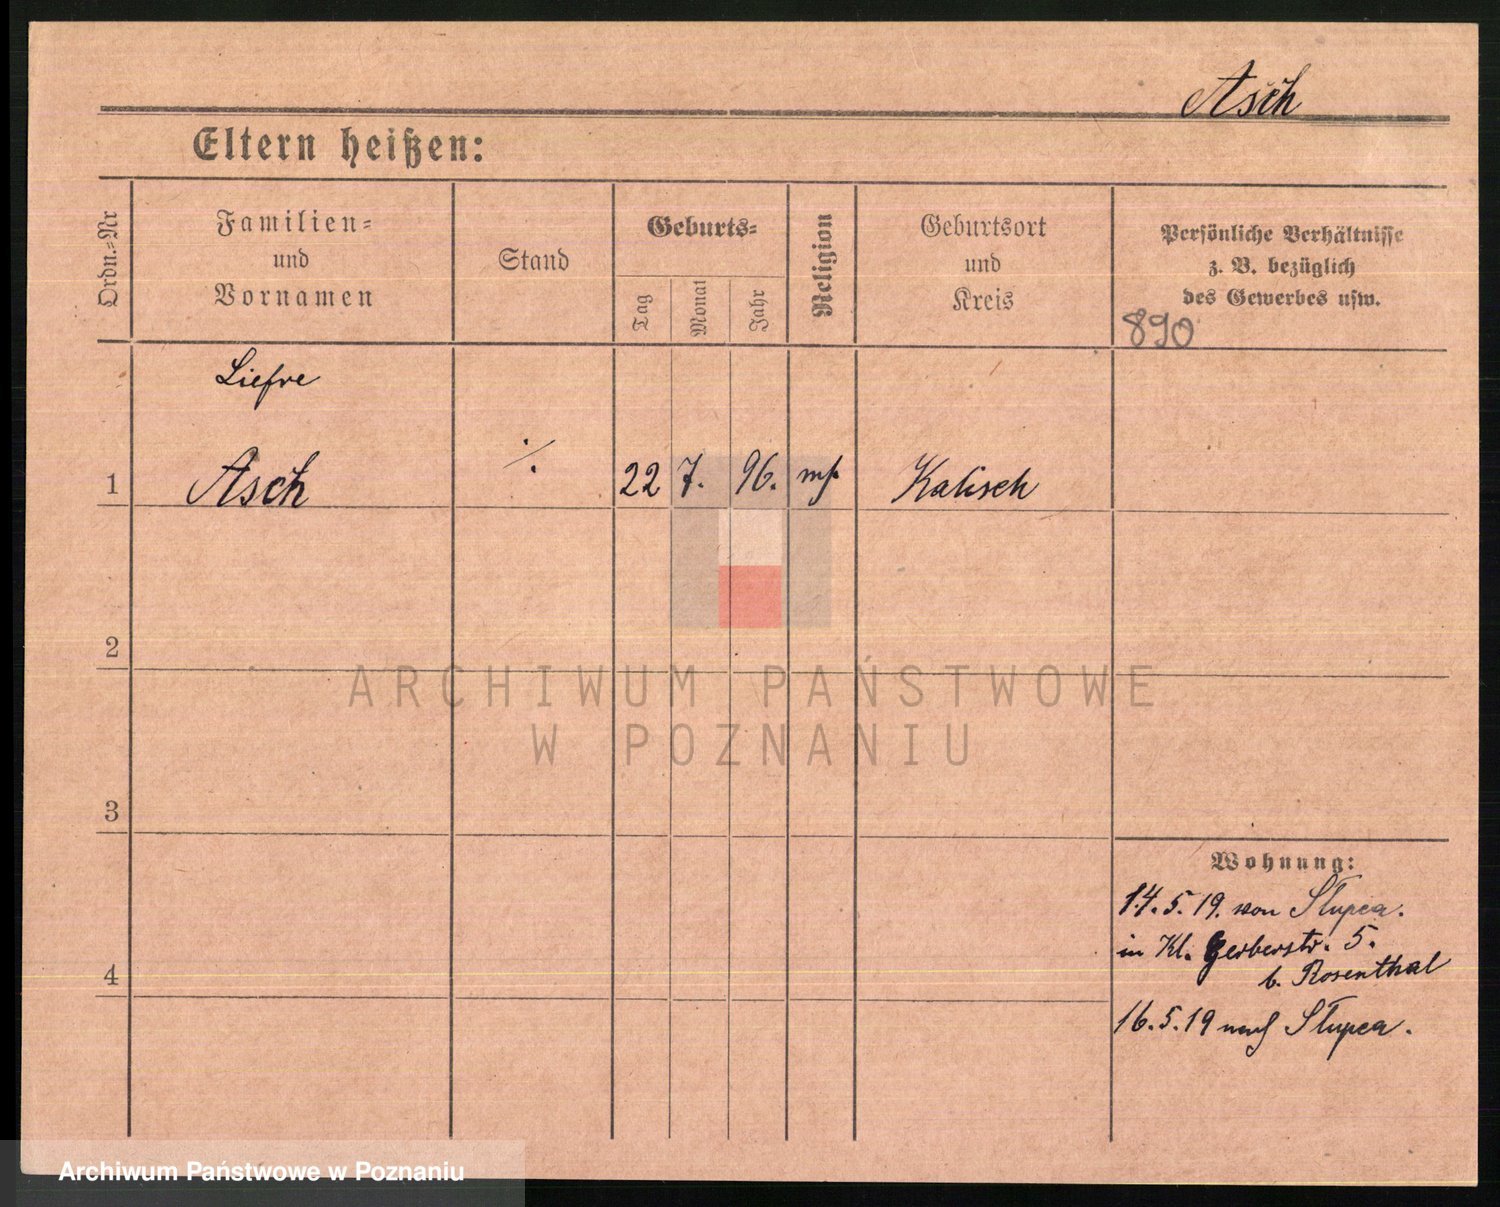 Asch
Eltern heißen:
Ordn.=Nr
Familien=
und
Vornamen
Stand
Geburts=
Tag
Monat
Jahr
Religion
Geburtsort
und
Kreis
Persönliche Verhältnisse
z. B. bezüglich
des Gewerbes usw.
890
Liefre
1 Asch ./. 22 7. 96. mos. Kalisch
2
3
4
Wohnung:
14.5.19. von Słupca.
in Kl. Gerberstr. 5.
b. Rosenthal
16.5.19 nach Słupca.
ARCHIWUM PAŃSTWOWE
W POZNANIU
Archiwum Państwowe w Poznaniu